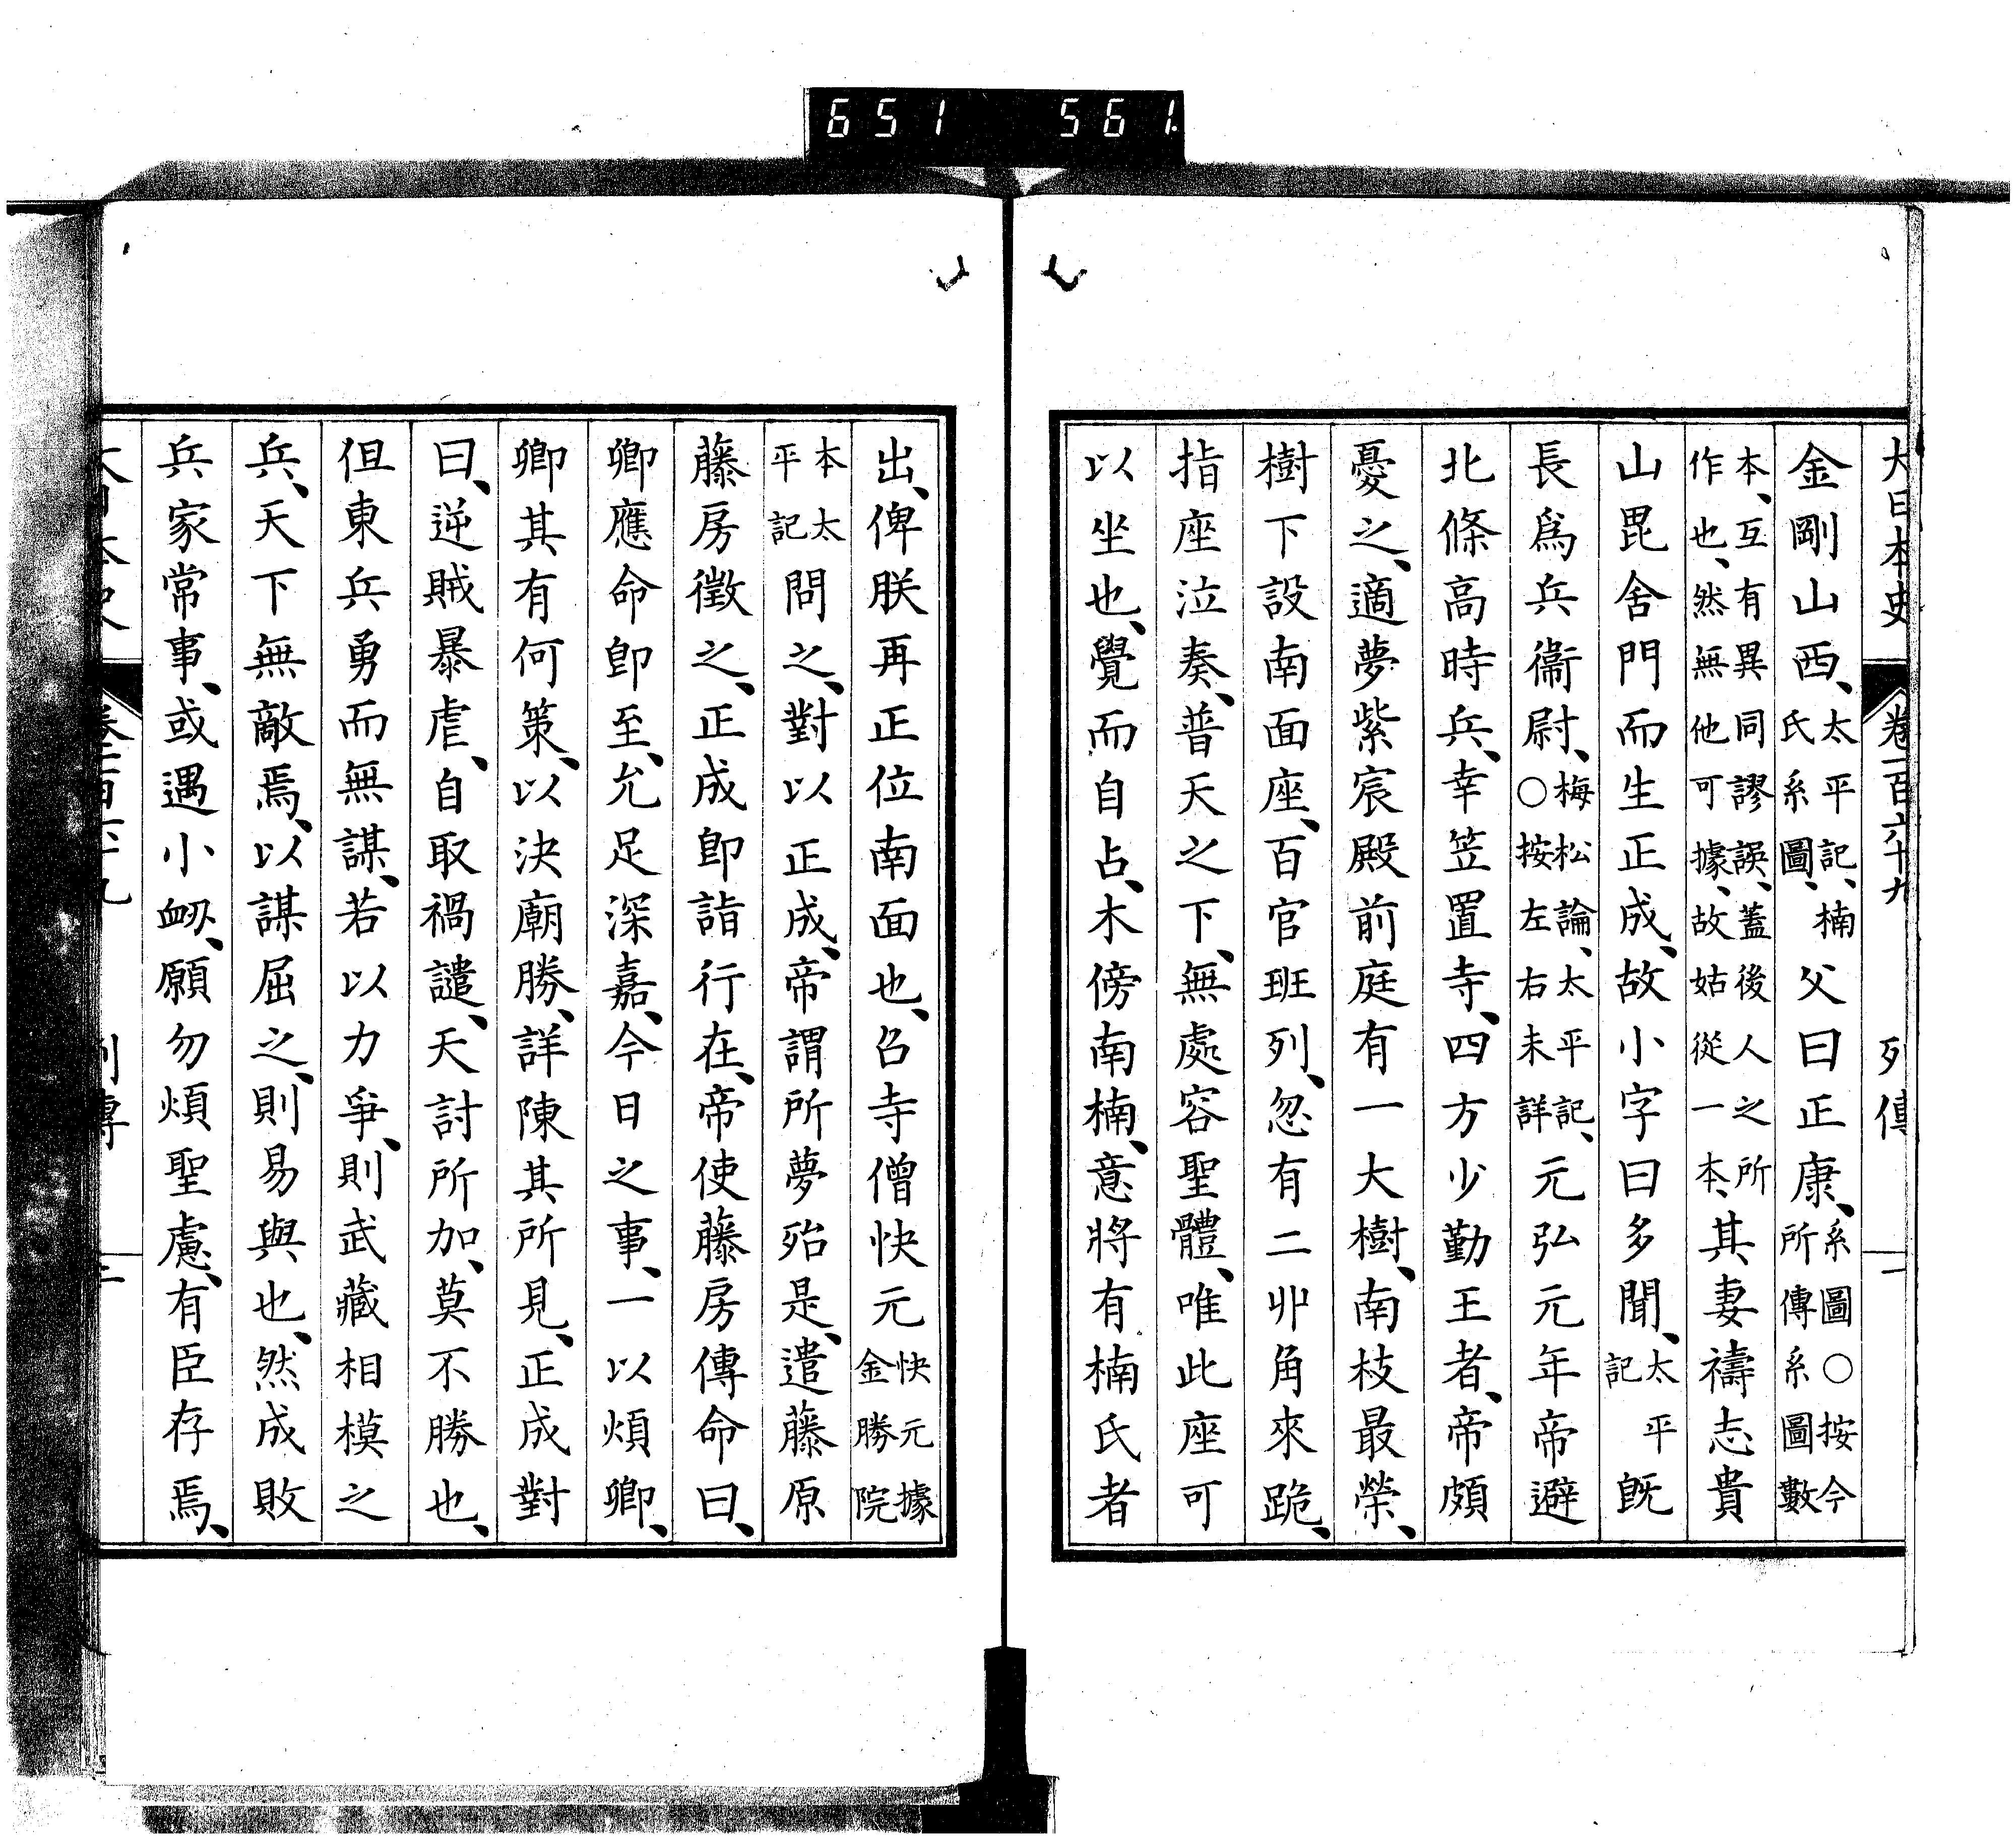 651 561
大日本史 卷一百六十九 列傳 一
金剛山西、太平記、楠氏系圖、父曰正康、系圖○按今所傳系圖數
本、互有異同謬誤、蓋後人之所作也、然無他可據、故姑從一本、其妻禱志貴
山毘舍門而生正成、故小字曰多聞、太平記既
長爲兵衞尉、梅松論、太平記、○按左右未詳元弘元年帝避
北條高時兵、幸笠置寺、四方少勤王者、帝頗
憂之、適夢紫宸殿前庭有一大樹、南枝最榮、
樹下設南面座、百官班列、忽有二丱角來跪、
指座泣奏、普天之下、無處容聖體、唯此座可
以坐也、覺而自占、木傍南楠、意將有楠氏者
出、俾朕再正位南面也、召寺僧快元快元據金勝院
本太平記問之、對以正成、帝謂所夢殆是、遣藤原
藤房徵之、正成卽詣行在、帝使藤房傳命曰、
卿應命卽至、允足深嘉、今日之事、一以煩卿、
卿其有何策、以決廟勝、詳陳其所見、正成對
曰、逆賊暴虐、自取禍譴、天討所加、莫不勝也、
但東兵勇而無謀、若以力爭、則武藏相模之
兵、天下無敵焉、以謀屈之、則易與也、然成敗
兵家常事、或遇小衂、願勿煩聖慮、有臣存焉、